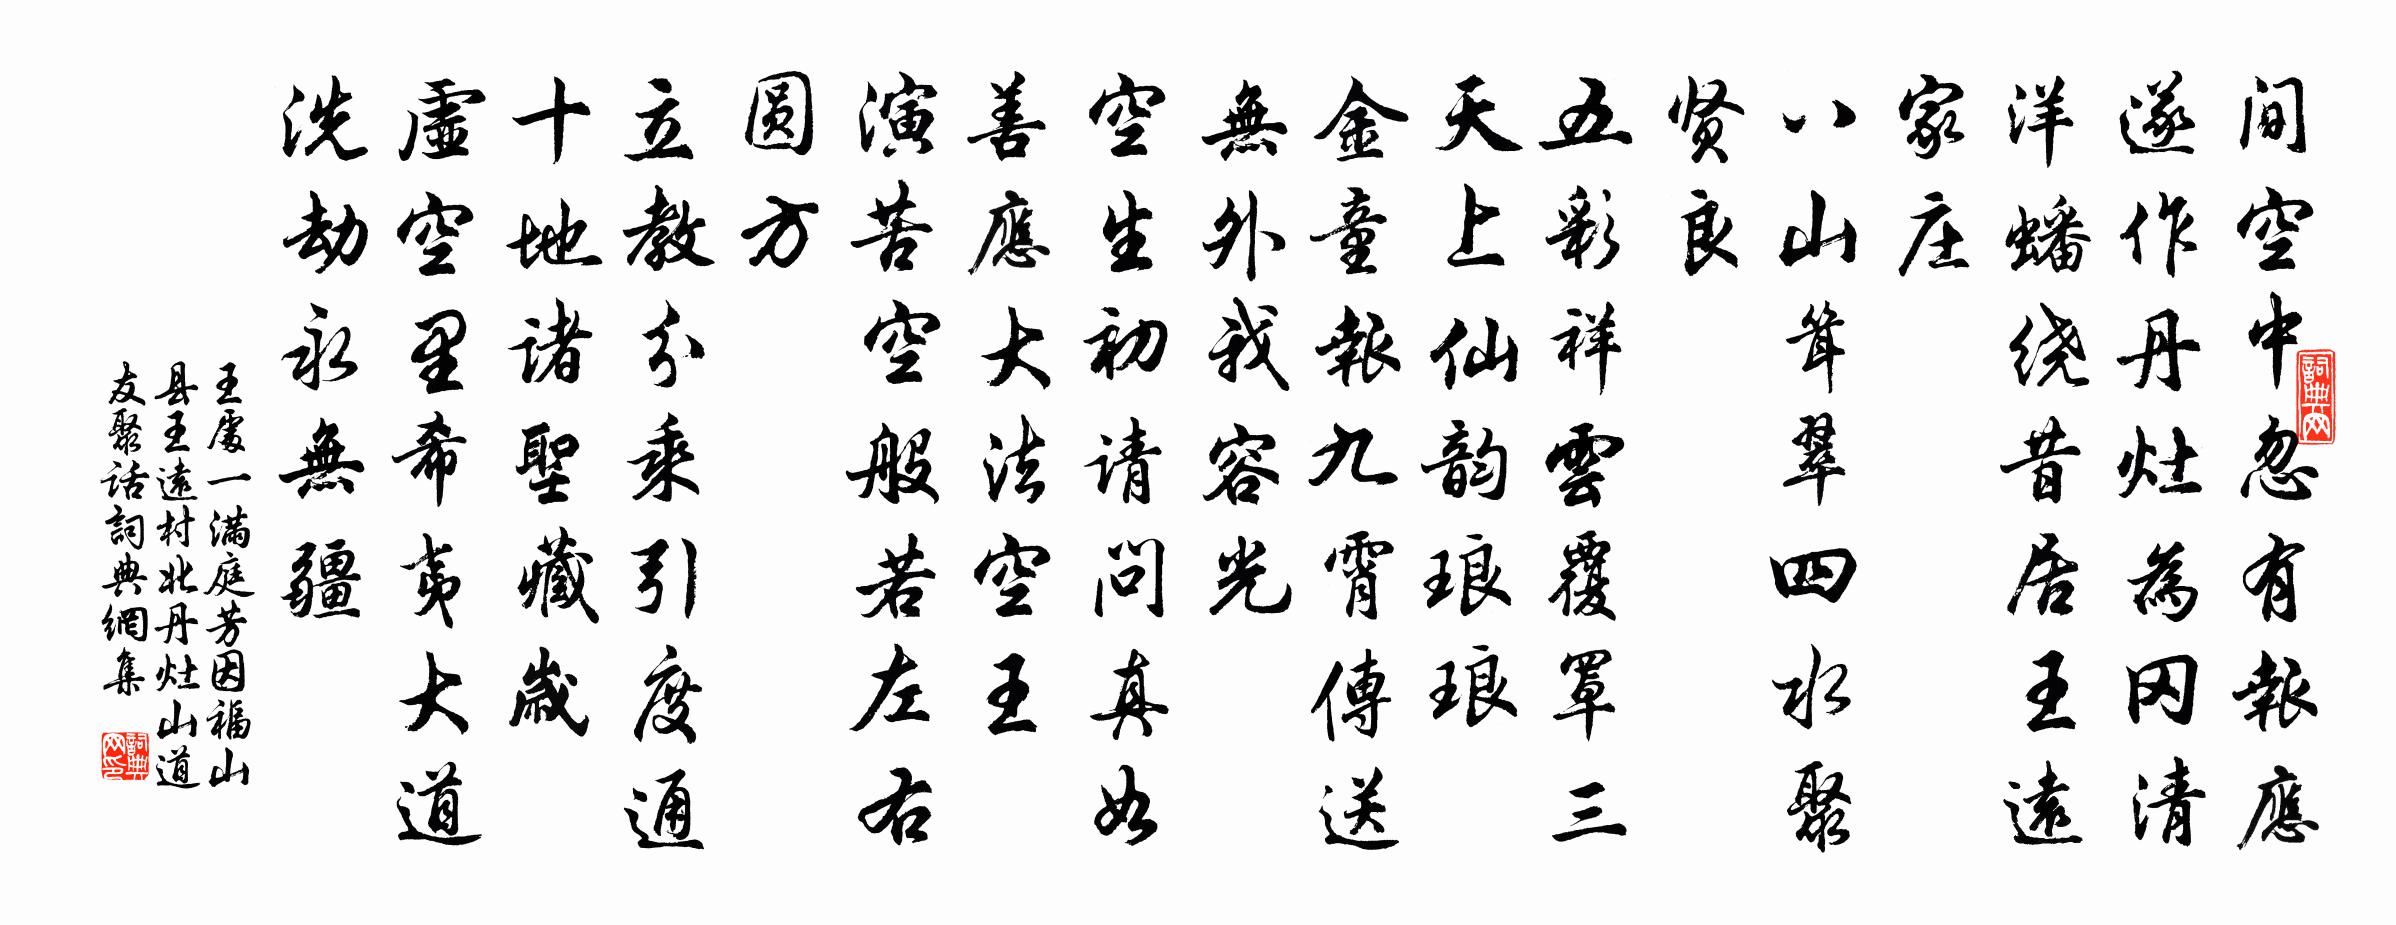 间空中忽有報應
遂作丹灶為冈清
洋蟠绕昔居王遠
家庄
八山耸翠四水聚
贤良
五彩祥雲覆罩三
天上仙韵琅琅
金童報九霄傳送
無外我容光
空生初请问真如
善應大法空王
演苦空般若左右
圆方
立教分乘引度通
十地诸聖藏歲
虚空里希夷大道
洗劫永無疆
王處一满庭芳因福山
县王遠村北丹灶山道
友聚话詞典網集
詞典网
詞典网印